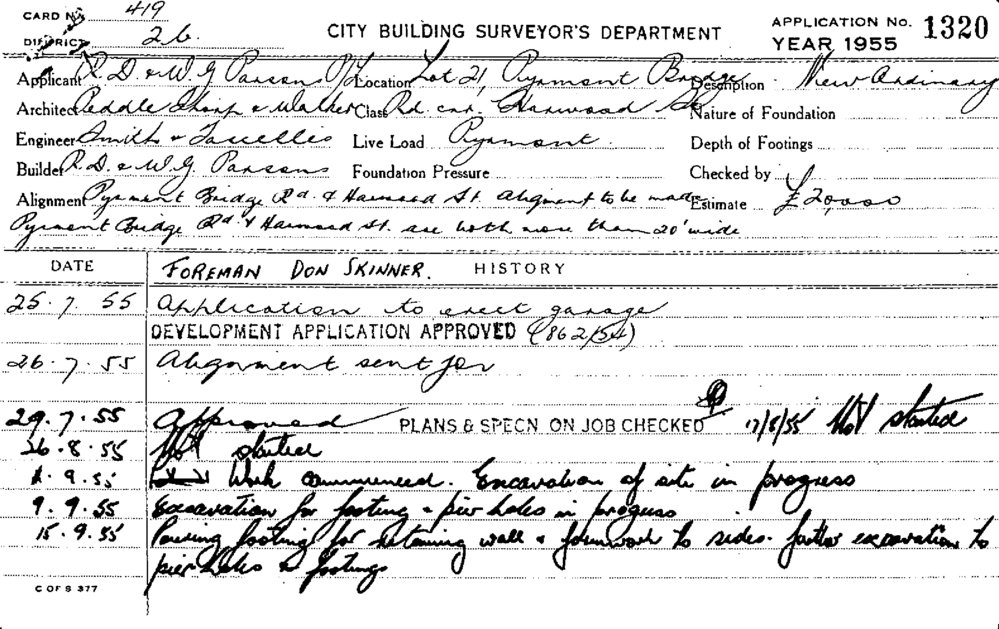 CARD No. 419
DISTRICT 26.
CITY BUILDING SURVEYOR'S DEPARTMENT
APPLICATION No. 1320
YEAR 1955
Applicant R. D. & W. G Parsons P/L Location Lot 21, Pyrmont Bridge Description New Ordinary
Architect Peddle Thorp & Walker Class Rd. cnr. Harwood St Nature of Foundation
Engineer Smith & Live Load Pyrmont. Depth of Footings
Builder R. D. & W. G Parsons Foundation Pressure Checked by
Alignment Pyrmont Bridge Rd. & Harwood St. alignment to be made Estimate £20,000
Pyrmont Bridge Rd. & Harwood St. are both more than 20' wide
DATE FOREMAN DON SKINNER. HISTORY
25. 7. 55 Application to erect garage
DEVELOPMENT APPLICATION APPROVED (862/54)
26. 7. 55 Alignment sent for
29. 7. 55 Approved PLANS & SPECN ON JOB CHECKED 17/8/55 Not started
26. 8. 55 Not started
9. 55 Work commenced. Excavation of site in progress
9. 9. 55 Excavation for footing & pier holes in progress
15. 9. 55 Pouring footing for retaining wall & formwork to sides. further excavation to
pier holes & footings
C OF S 377